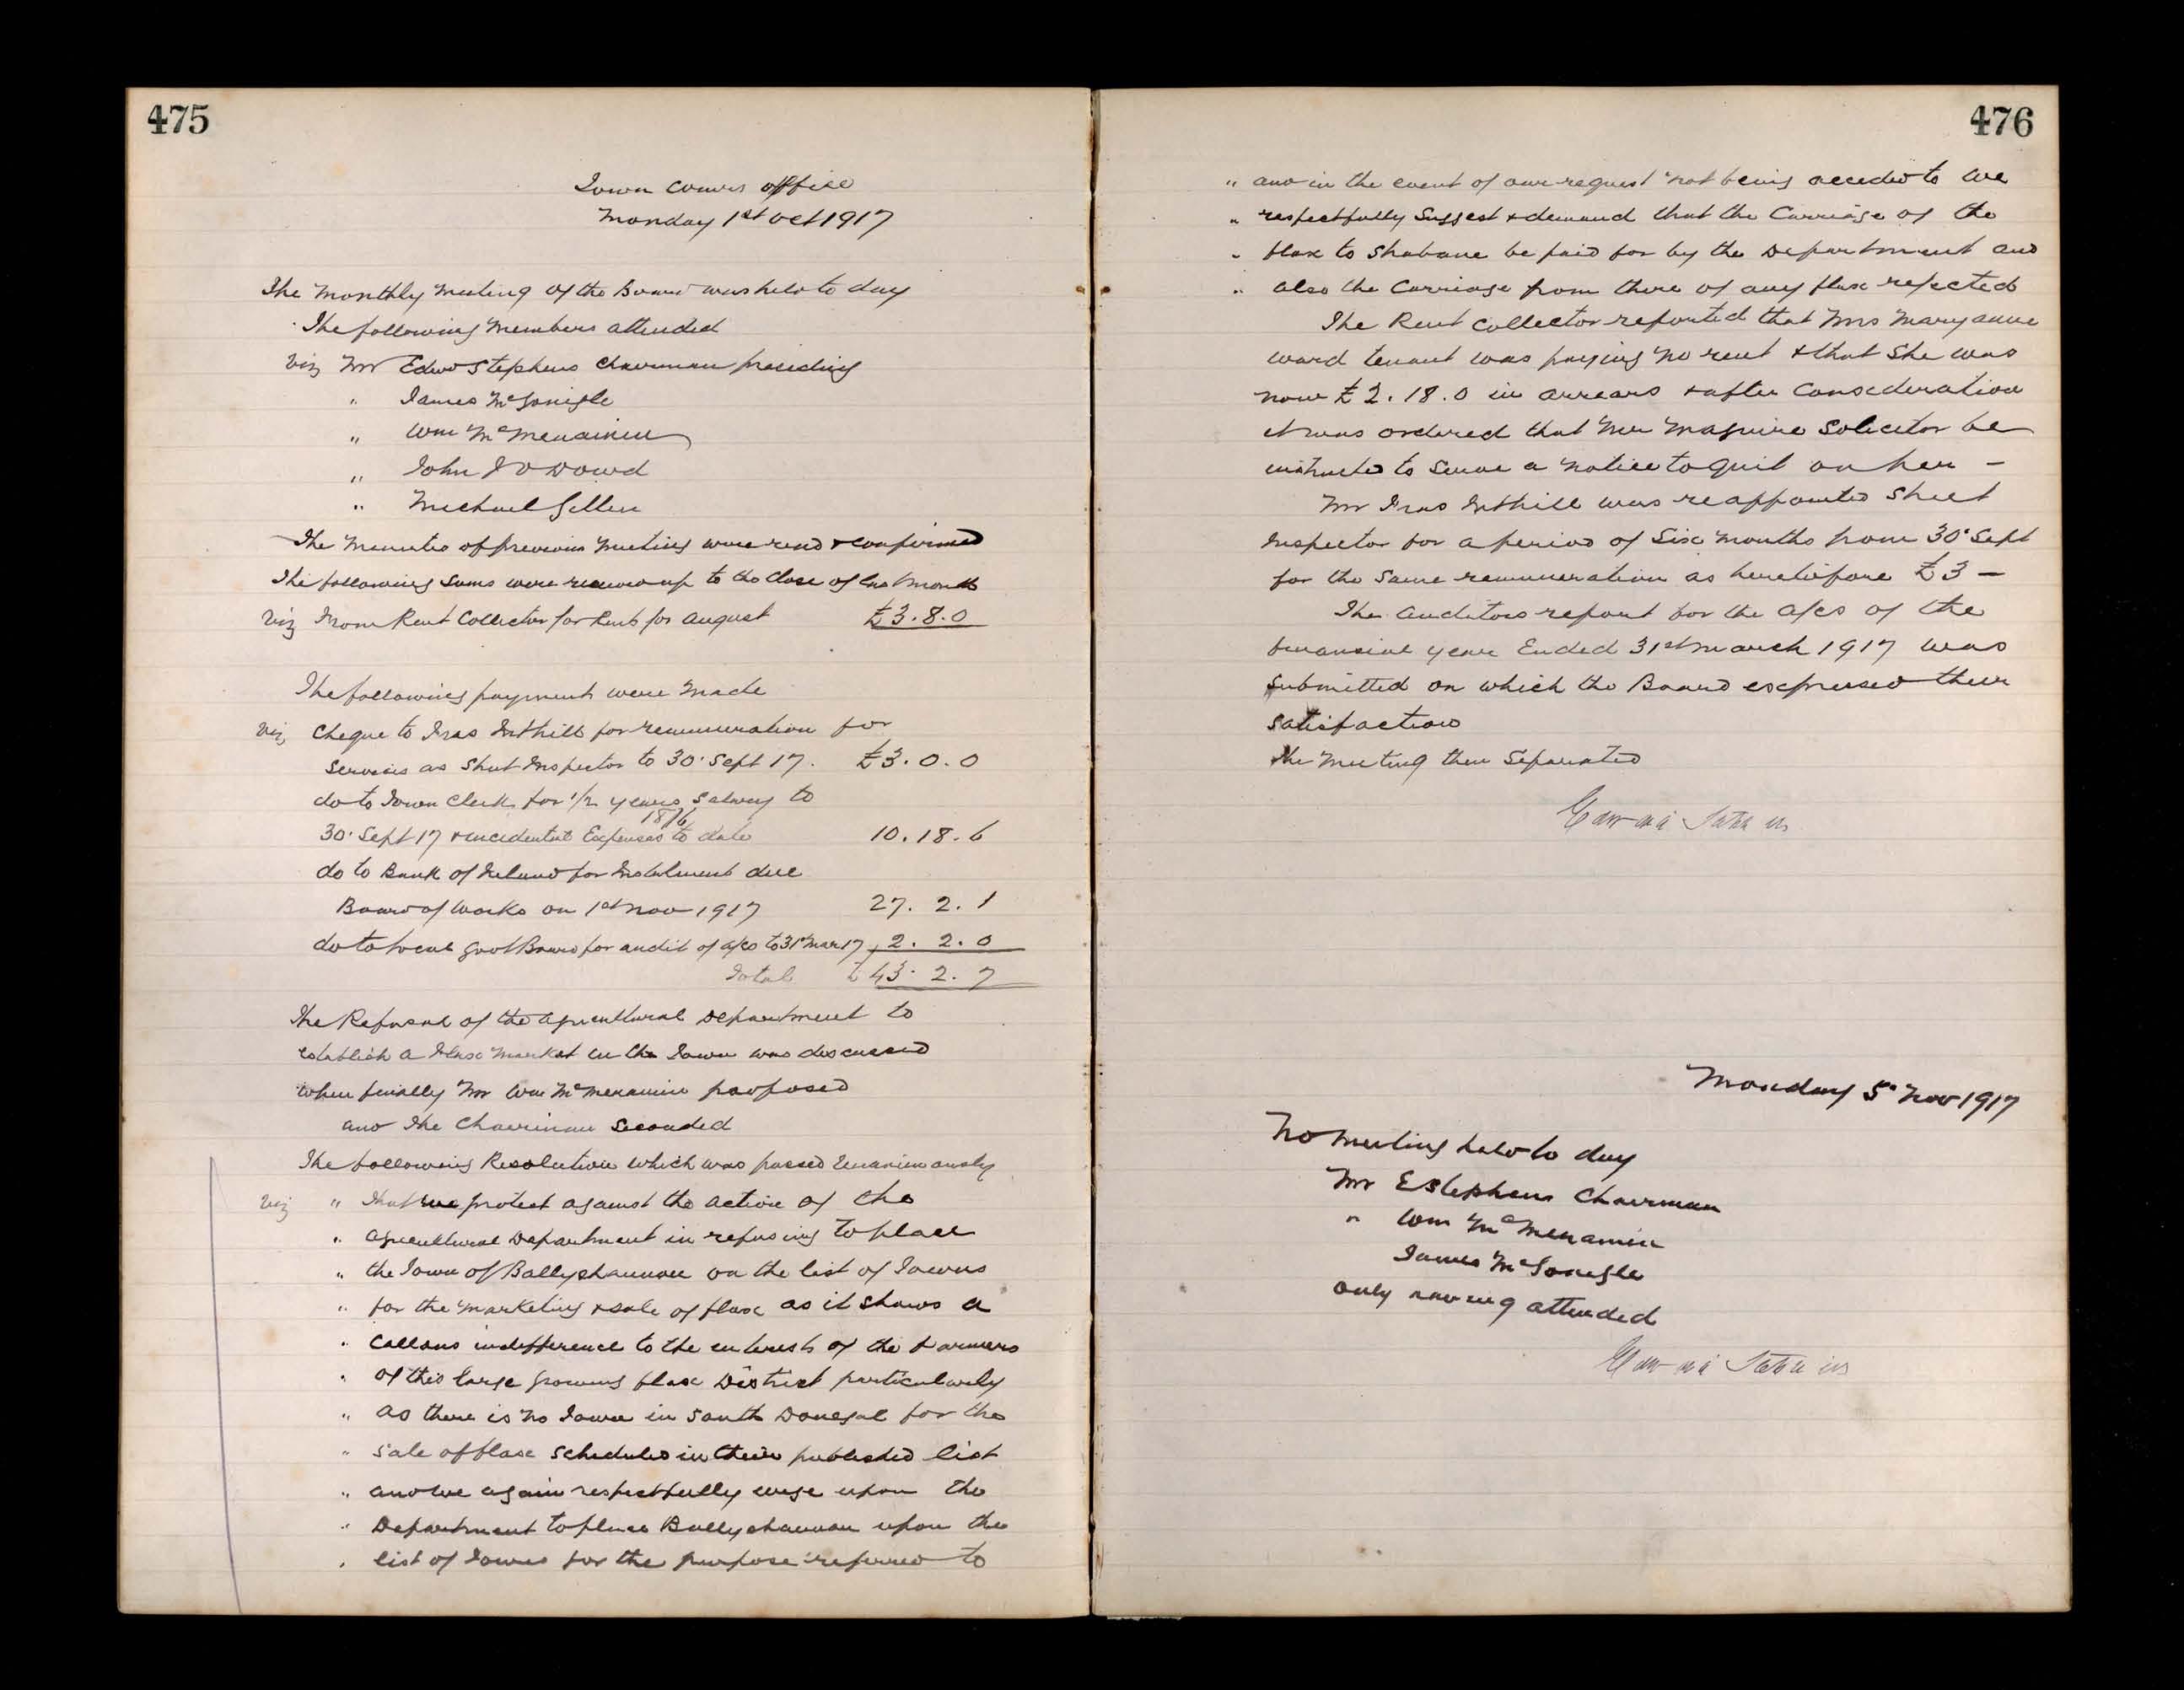 475
Town Comrs office
Monday 1st Oct 1917
The Monthly Meeting of the Board was held to day
The following Members attended
Viz Mr Edwd Stephens Chairman presiding
" James McGonigle
" Wm McMenamin
" John J O Dowd
" Michael Gillen
The Minutes of previous Meeting were read & confirmed
The following Sums were received up to the Close of last month
Viz From Rent Collector for Rents for August £3.8.0
The following payments were Made
Viz Cheque to Fras for remuneration for
Services as Street Inspector to 30' Sept 17. £3.0.0
do to Town Clerk for 1/2 years Salary to
18/6
30' Sept 17 & incidental Expenses to date 10.18.6
do to Bank of Ireland for Instalment due
Board of Works on 1st Nov 1917 27. 2. 1
do to Local Govt Board for audit of a/cs to 31st Mar 17 2. 2. 0
Total £43. 2. 7
The Refusal of the Agricultural Department to
establish a Flax Market in the Town was discussed
when finally Mr Wm McMenamin proposed
and The Chairman Seconded
The following Resolution which was passed Unanimously
Viz " That we protest against the action of the
" Agricultural Department in refusing to place
" the Town of Ballyshannon on the list of Towns
" for the Marketing & sale of flax as it shows a
" callous indifference to the interests of the Farmers
" of this large growing flax District particularly
" as there is no Town in South Donegal for the
" sale of flax scheduled in their published list
" and we again respectfully urge upon the
" Department to place Ballyshannon upon the
" list of Towns for the purpose referred to
476
" and in the event of our request not being acceded to we
" respectfully Suggest & demand that the Carriage of the
" flax to Strabane be paid for by the Department and
" also the Carriage from there of any flax rejected
The Rent Collector reported that Mrs Maryanne
Ward tenant was paying no rent & that She was
now £2.18.0 in arrears & after Consideration
it was ordered that Mr Maguire Solicitor be
instructed to Serve a Notice to quit on her -
Mr Fras was reappointed Street
Inspector for a period of Six Months from 30' Sept
for the Same remuneration as heretofore £3 -
The Auditors report for the a/cs of the
financial year Ended 31st March 1917 was
Submitted on which the Board expressed their
satisfaction
The Meeting then Separated
Monday 5' Nov 1917
No Meeting held to day
Mr E Stephens Chairman
" Wm McMenamin
James McGonigle
only having attended